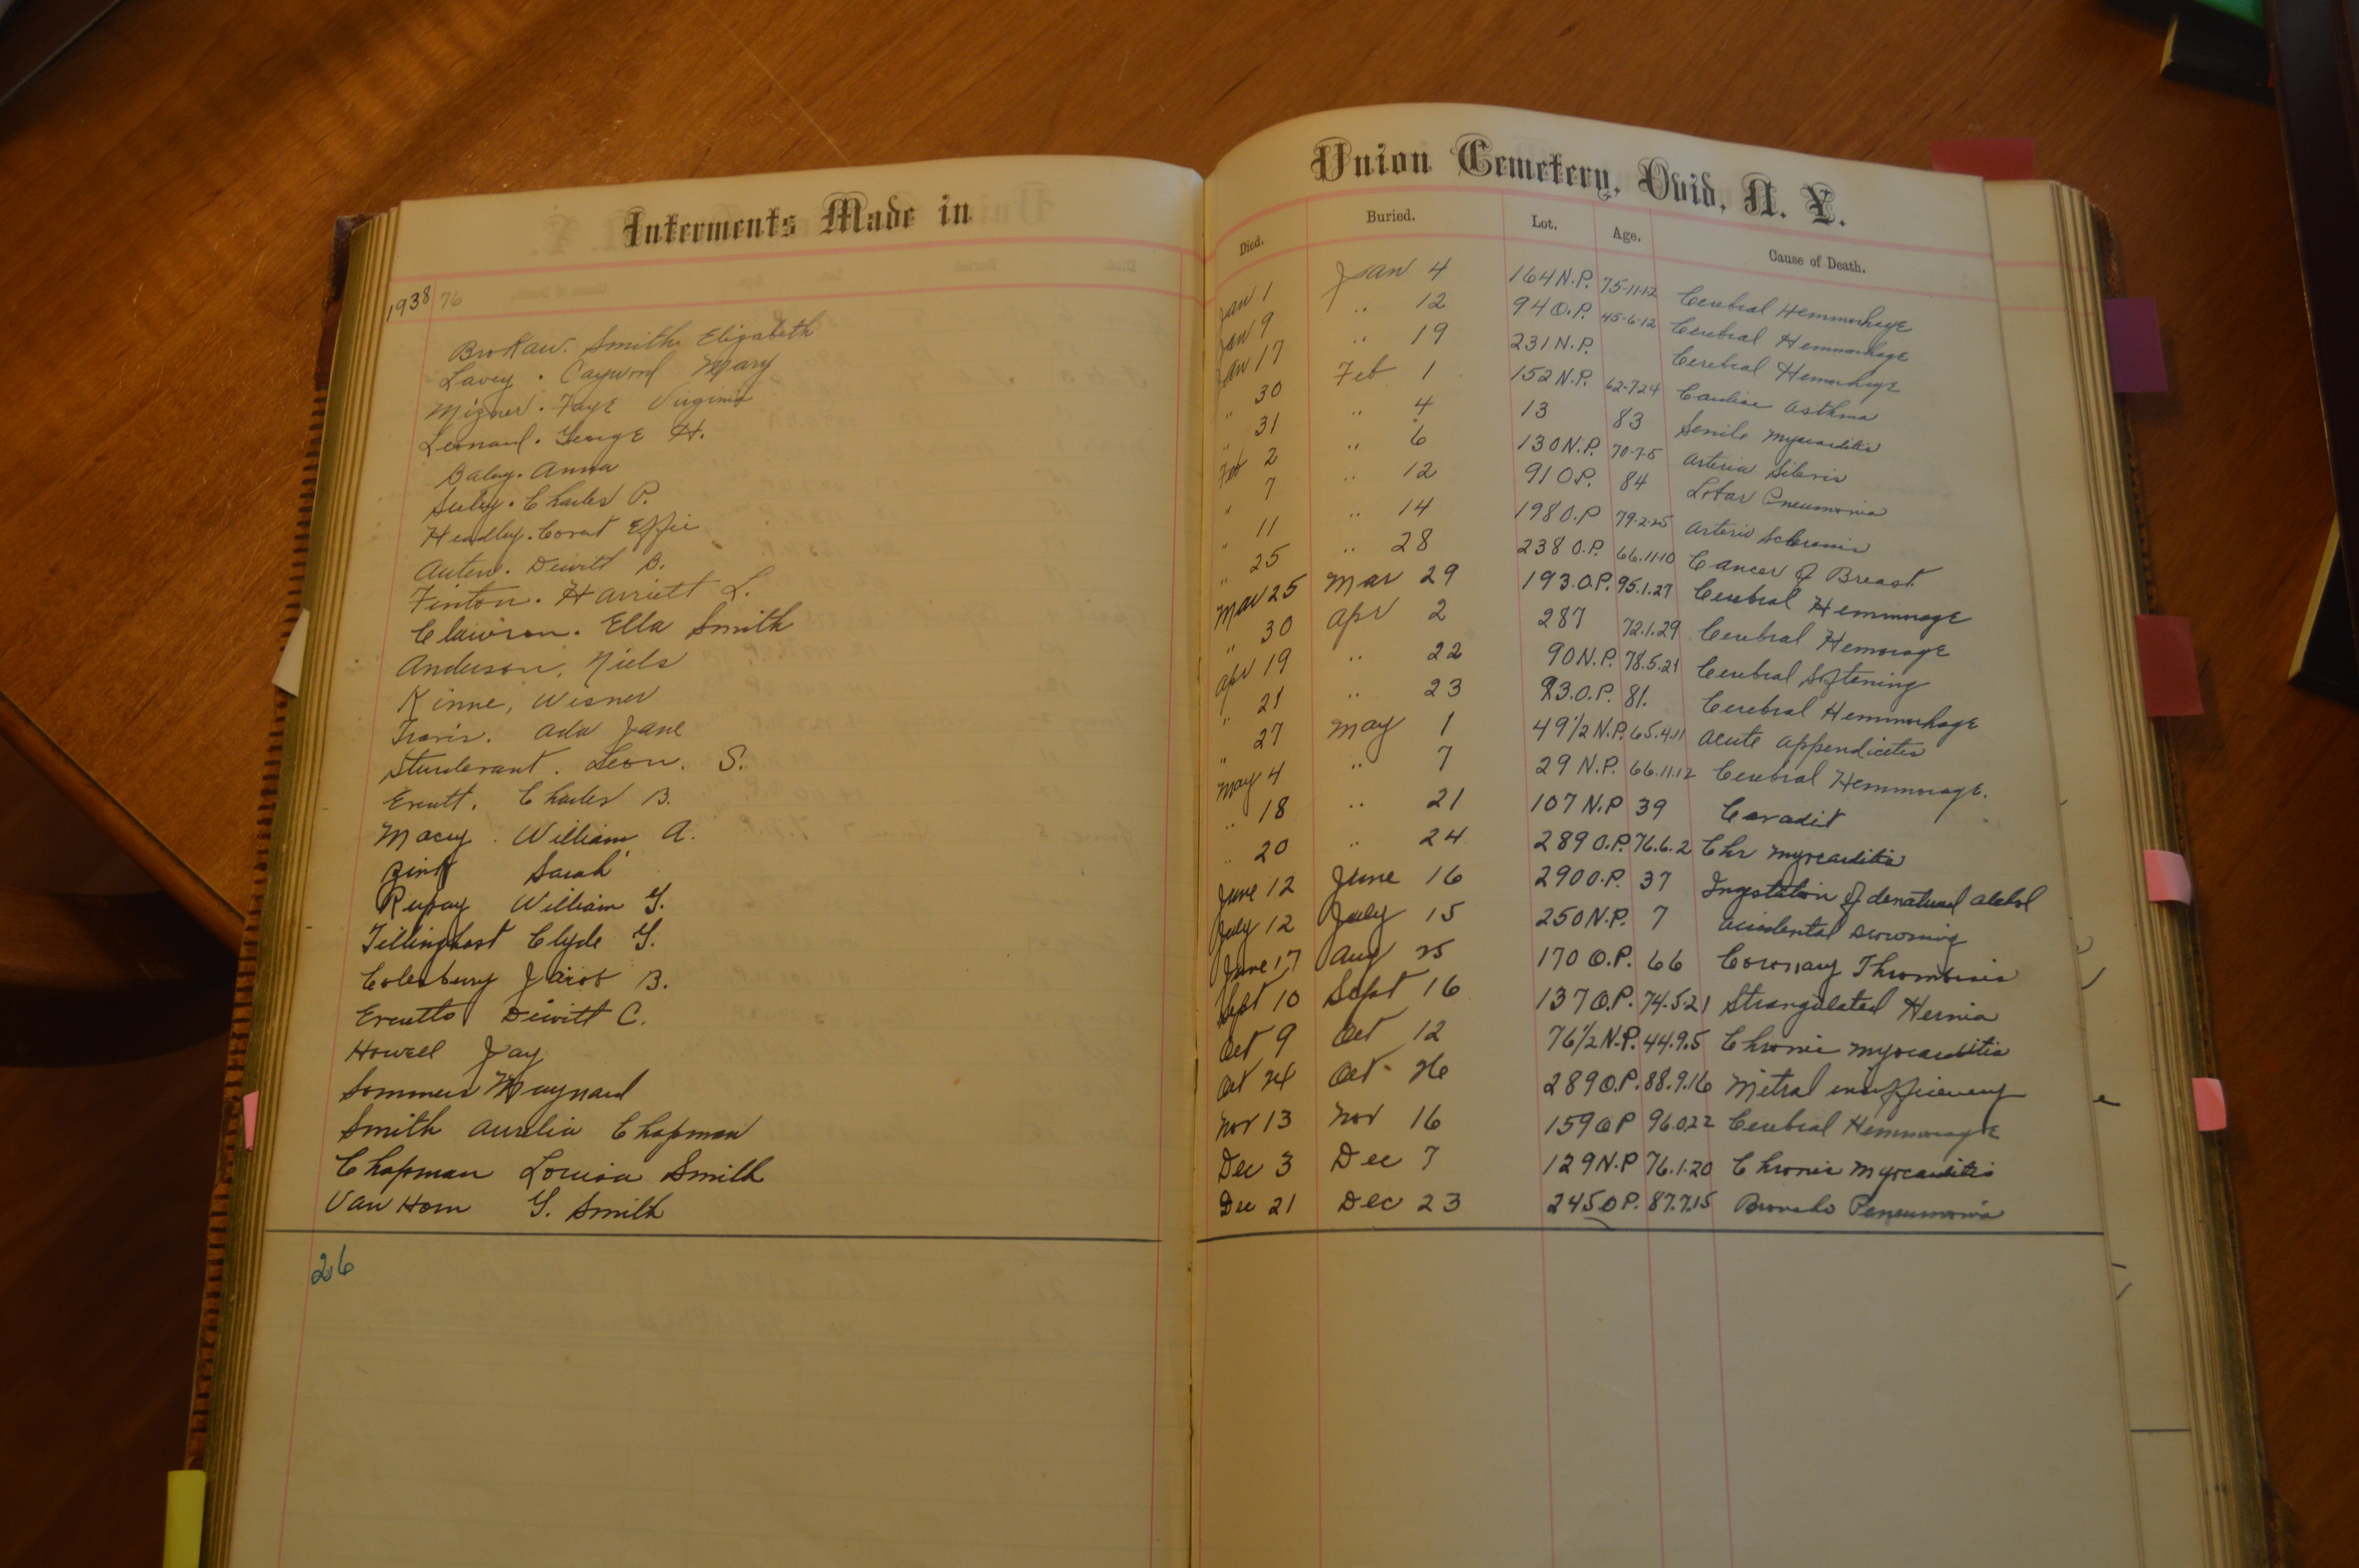 Interments Made in
1938 76
Brokaw. Smith Elizabeth
Lavey. Caywood Mary
Mizner. Faye Virginia
Leonard. George H.
Baley. Anna
Seeley. Charles P.
Headley. Covert Effie
Auten. Dewitt B.
Finton. Harriett L.
Clawson. Ella Smith
Anderson, Niels
Kinne, Wisner
Travis. Ada Jane
Sturdevant. Leon. S.
Everitt. Charles B.
Macey. William A.
Zink Sarah
Rupay William G.
Tillinghast Clyde G.
Colesbury Jacob B.
Everitts Dewitt C.
Howell Jay
Sommers Maynard
Smith Aurelia Chapman
Chapman Louisa Smith
Van Horn G. Smith
26
Union Cemetery, Ovid, N. Y.
Died. Buried. Lot. Age. Cause of Death.
Jan 1 Jan 4 164 N.P. 75-11-12 Cerebral Hemmorhage
Jan 9 " 12 94 O.P. 45-6-12 Cerebral Hemmorhage
Jan 17 " 19 231 N.P. Cerebral Hemorhage
" 30 Feb 1 152 N.P. 62-7-24 Cardiac Asthma
" 31 " 4 13 83 Senile Myocarditis
Feb 2 " 6 130 N.P. 70-7-5 Arteria Sileris
" 7 " 12 91 O.P. 84 Lobar Pneumonia
" 11 " 14 198 O.P 79-2-25 Arterio Sclerosis
" 25 " 28 238 O.P. 66.11.10 Cancer of Breast
Mar 25 Mar 29 193.O.P. 95.1.27 Cerebral Hemmorage
" 30 Apr 2 287 72.1.29 Cerebral Hemorage
Apr 19 " 22 90 N.P. 78.5.21 Cerebral Softening
" 21 " 23 93.O.P. 81. Cerebral Hemmorhage
" 27 May 1 49 1/2 N.P. 65.4.11 Acute Appendicites
May 4 " 7 29 N.P. 66.11.12 Cerebral Hemmorage.
" 18 " 21 107 N.P 39
" 20 " 24 289 O.P. 76.6.2 Chr Myocarditis
June 12 June 16 290 O.P. 37 Ingestation of denatured alcohol
July 12 July 15 250 N.P. 7 Accidental Drowning
June 17 Aug 25 170 O.P. 66 Coronary Thrombosis
Sept 10 Sept 16 137 O.P. 74.5.21 Strangulated Hernia
Oct 9 Oct 12 76 1/2 N.P. 44.9.5 Chronic Myocarditis
Oct 24 Oct. 26 289 O.P. 88.9.16 Mitral insufficiency
Nov 13 Nov 16 159 OP 96.0.22 Cerebral Hemmorage
Dec 3 Dec 7 129 N.P 76.1.20 Chronic Myocarditis
Dec 21 Dec 23 245 O P. 87.7.15 Broncho Peneumonia